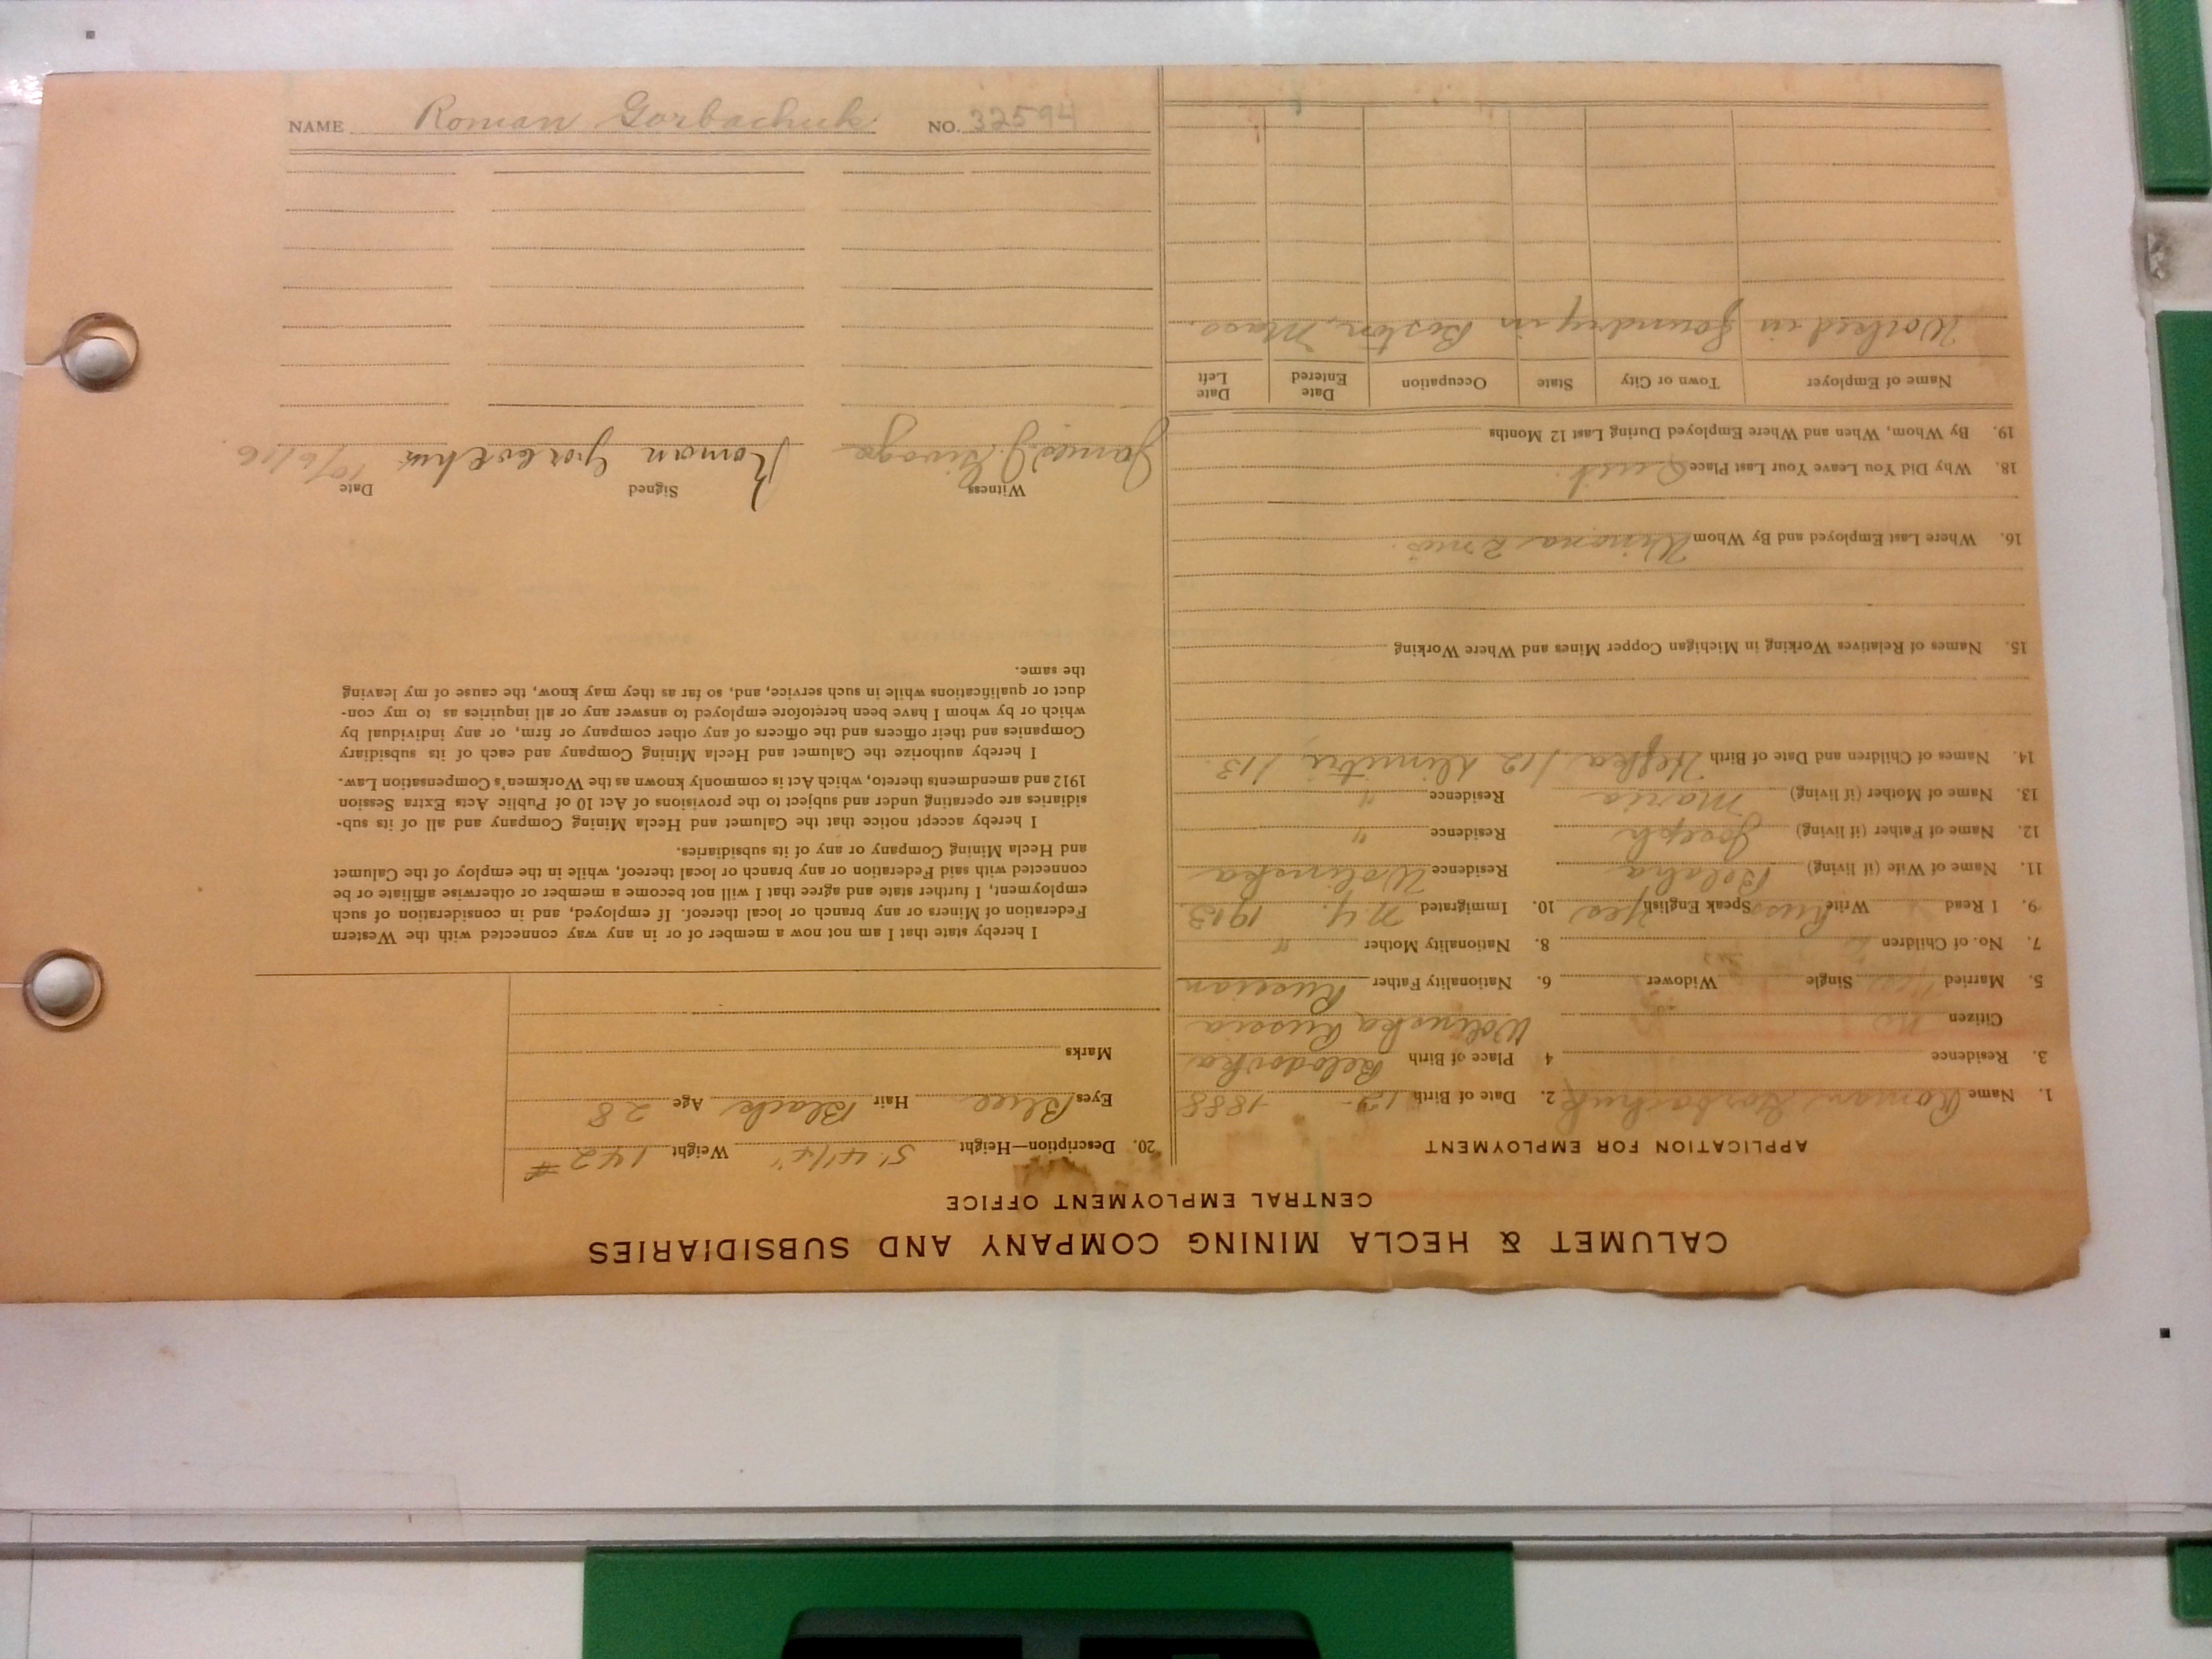 NAME Roman Gorbachuk NO. 32594
CALUMET & HECLA MINING COMPANY AND SUBSIDIARIES
CENTRAL EMPLOYMENT OFFICE
APPLICATION FOR EMPLOYMENT
1. Name Roman Gorbachuk 2. Date of Birth 12 - 1888
3. Residence 4 Place of Birth Belodovka
Citizen no Wolinska Russia
5. Married Single Widower 6. Nationality Father Russian
7. No. of Children 8. Nationality Mother "
9. I Read Write Russ Speak English Yes 10. Immigrated N.Y. 1913
11. Name of Wife (if living) Residence Wolinska
12. Name of Father (if living) Joseph Residence "
13. Name of Mother (if living) Maria Residence "
14. Names of Children and Date of Birth /12 Dimitri /13.
15. Names of Relatives Working in Michigan Copper Mines and Where Working
16. Where Last Employed and By Whom Winona
18. Why Did You Leave Your Last Place Quit.
19. By Whom, When and Where Employed During Last 12 Months
Name of Employer Town or City State Occupation Date Entered Date Left
Worked in foundry in Boston, Mass.
20. Description—Height 5' 4 1/4" Weight 142 #
Eyes Blue Hair Black Age 28
Marks
I hereby state that I am not now a member of or in any way connected with the Western
Federation of Miners or any branch or local thereof. If employed, and in consideration of such
employment, I further state and agree that I will not become a member or otherwise affiliate or be
connected with said Federation or any branch or local thereof, while in the employ of the Calumet
and Hecla Mining Company or any of its subsidiaries.
I hereby accept notice that the Calumet and Hecla Mining Company and all of its sub-
sidiaries are operating under and subject to the provisions of Act 10 of Public Acts Extra Session
1912 and amendments thereto, which Act is commonly known as the Workmen's Compensation Law.
I hereby authorize the Calumet and Hecla Mining Company and each of its subsidiary
Companies and their officers and the officers of any other company or firm, or any individual by
which or by whom I have been heretofore employed to answer any or all inquiries as to my con-
duct or qualifications while in such service, and, so far as they may know, the cause of my leaving
the same.
Witness Signed Date
James J. Roman 10/6/16.